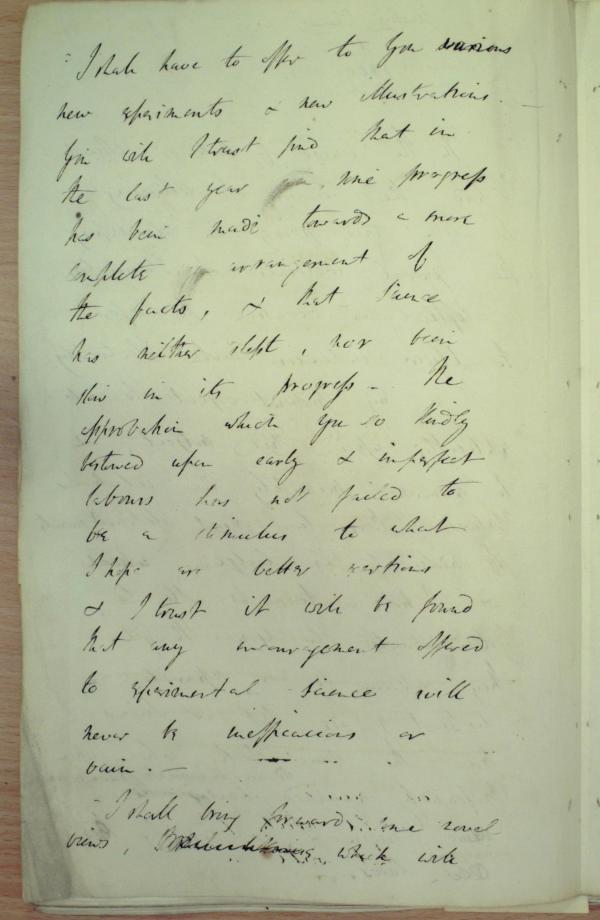 - I shall have to offer to You various
new experiments & new illustrations. -
You will I trust find that in
the last year some progress
has been made towards a more
complete arrangement of
the facts, & that Science
has neither slept, nor been
slow in its progress - The
approbation which you so kindly
bestowed upon early & imperfect
labours has not failed to
be a stimulus to what
I hope are better exertions
& I trust it will be found
that any encouragement offered
to experimental Science will
never be inefficacious or
vain. -
- I shall bring forward some novel
views, which will